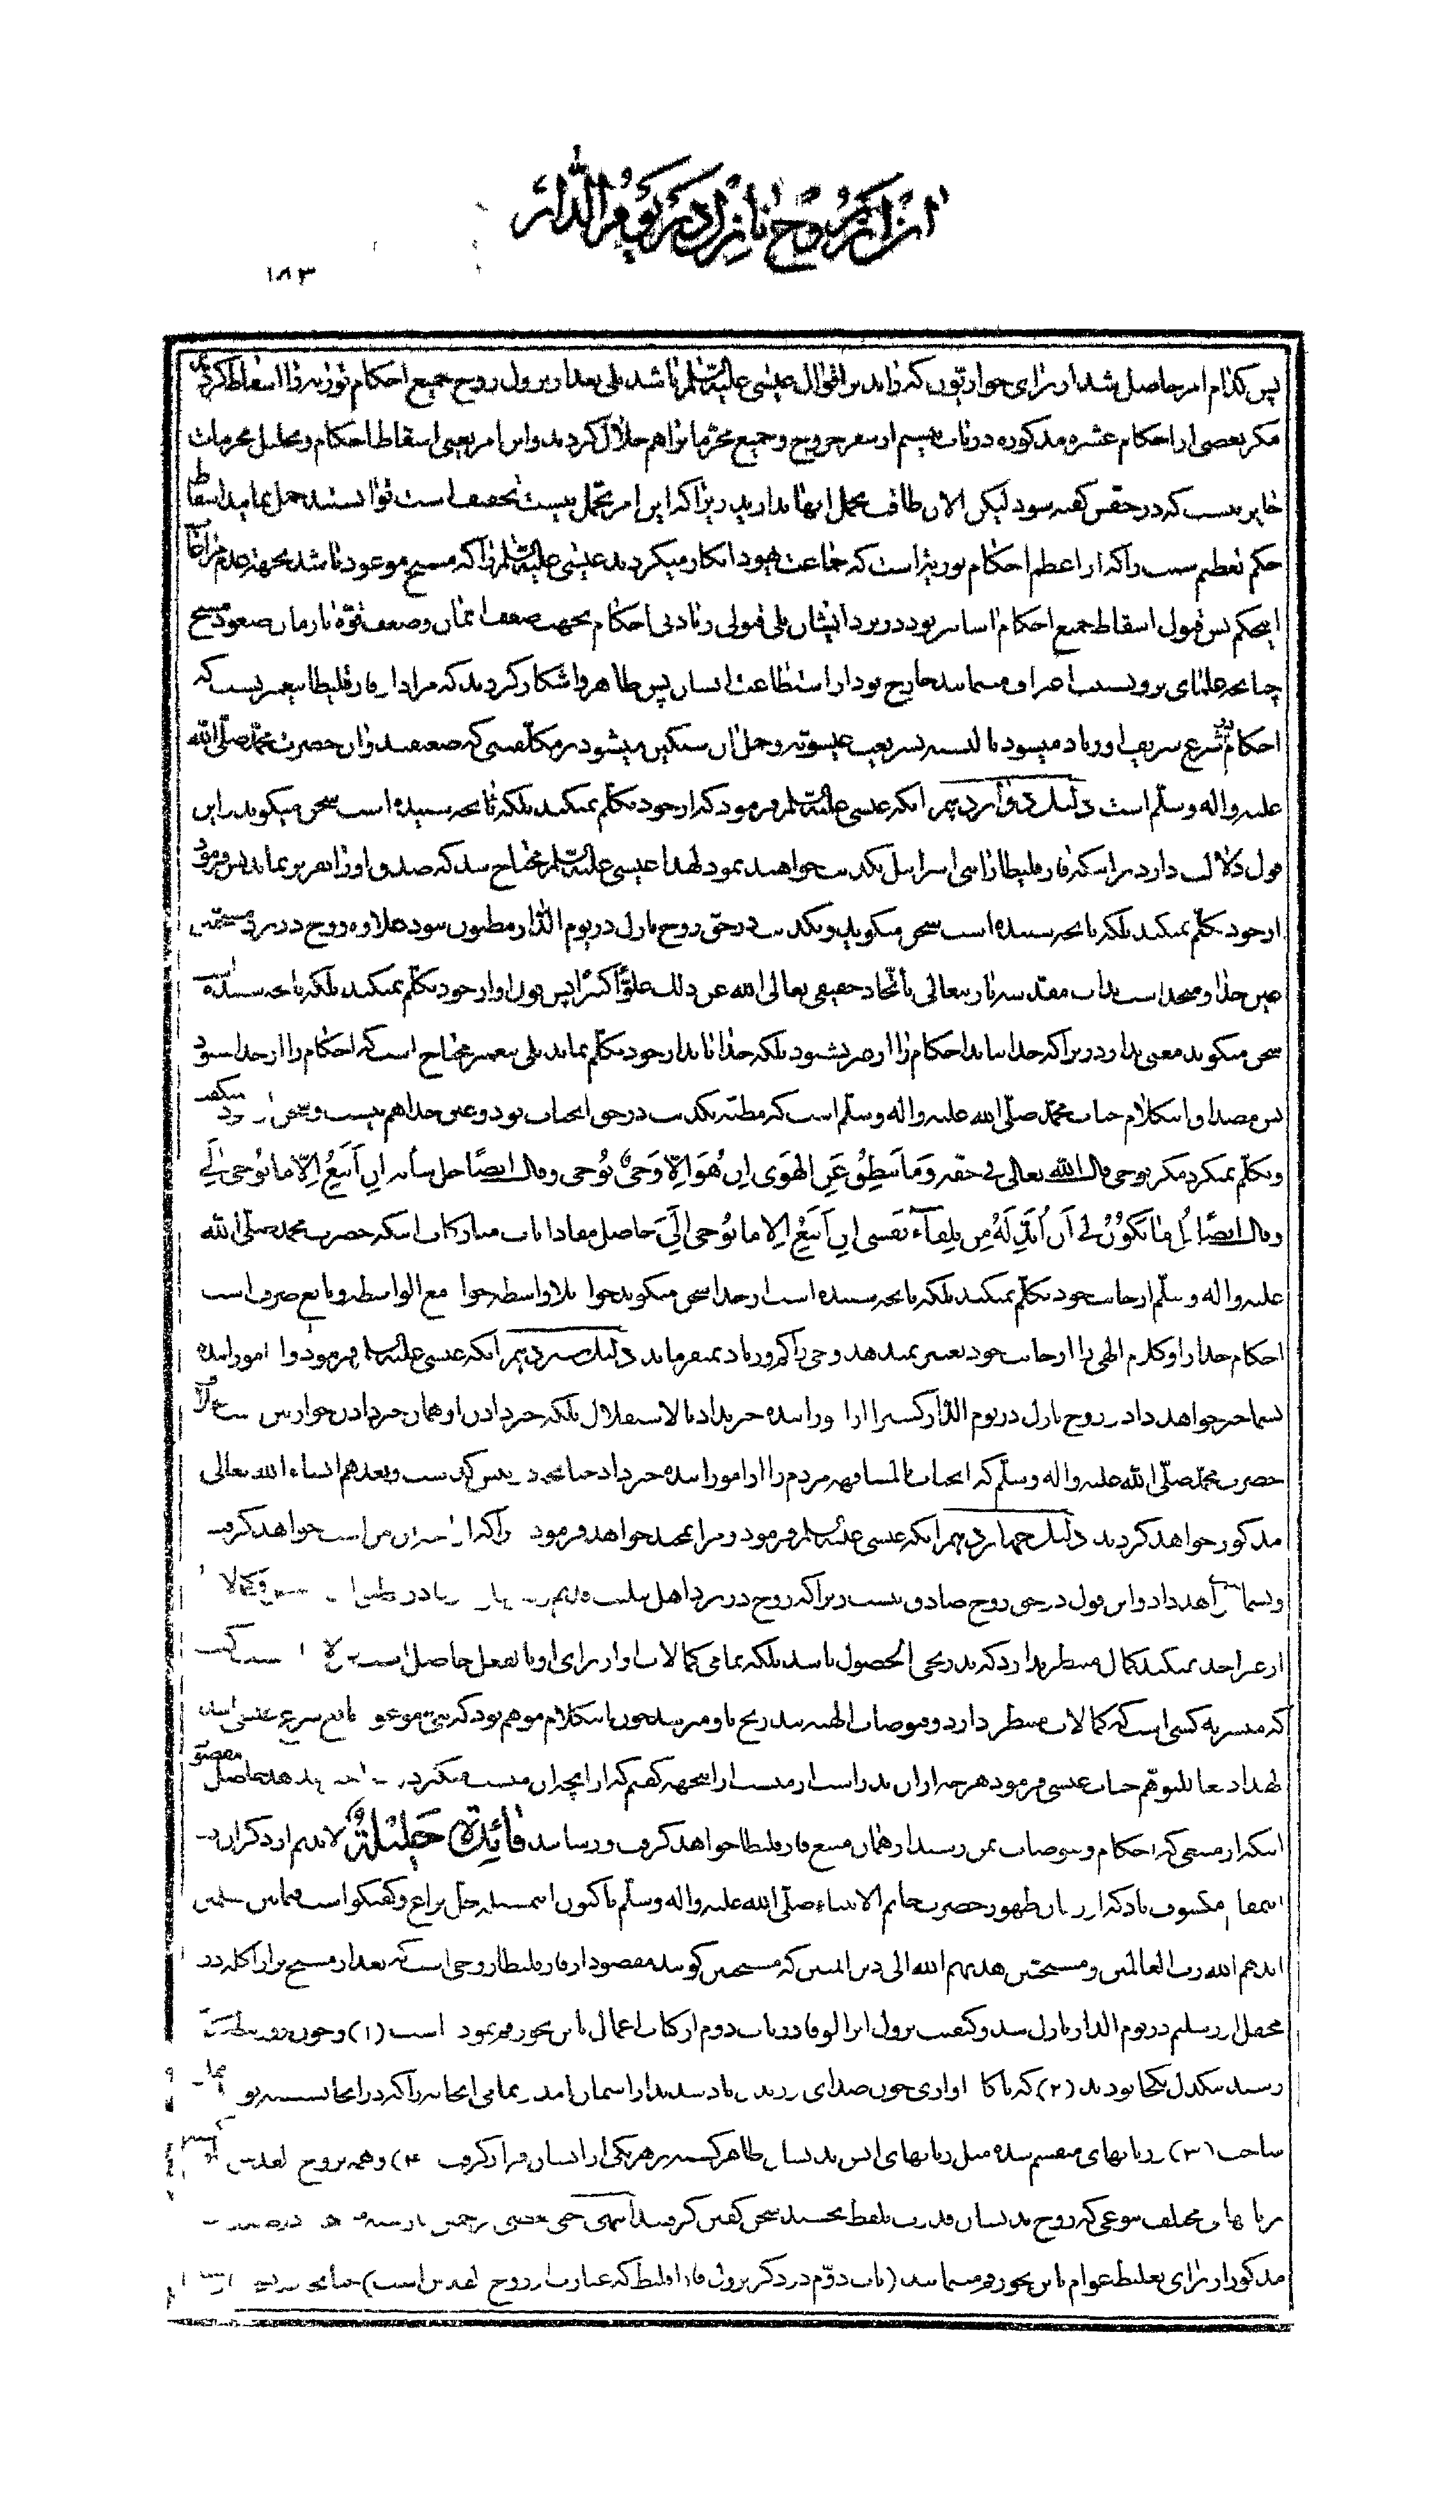 ۱۸۳
پس کدام امر حاصل شد از برای حواریون که زاید بر اقوال عیسی علیه السلام باشد بلی بعد از نزول روح جمیع احکام توریة را اسقاط کردند
مگر بعضی از احکام عشره مذکوره در باب بیستم از سفر خروج و جمیع محرمات را هم حلال کردند و این امر یعنی اسقاط احکام و تحلیل محرمات
جایز نیست که در حقش گفته شود لیکن الان طاقت تحمل انها ندارید زیرا که این امر تحمل نیست تخفیف است توانستند حمل نمایند اسقاط
حکم تعظیم سبت را که از اعظم احکام توریة است که جماعت یهود انکار میکردند عیسی علیه السلام را که مسیح موعود باشد بجهة عدم مراعات
اینحکم پس قبول اسقاط جمیع احکام اسان بود در نزد ایشان بلی قبولی زیادتی احکام بجهت ضعف ایمان و ضعف قوه تا زمان صعود مسیح
چنانچه علمای پروتستنت اعتراف مینمایند خارج بود از استطاعت ایشان پس ظاهر و اشکار گردید که مراد از فارقلیطا پیغمبریست که
احکام در شرع شریف او زیاد میشود بالنسبه بشریعت عیسویه و حمل ان سنگین میشود بر مکلفینی که ضعیفند و ان حضرت محمد صلی الله
علیه و اله و سلم است دلیل دوازدهم انکه عیسی علیه السلام فرمود که از خود تکلم نمیکند بلکه تا نچه شنیده است سخن میگوید این
قول دلالت دارد بر اینکه فارقلیطا را بنی اسرائیل تکذیب خواهند نمود لهذا عیسی علیه السلام محتاج شد که صدق او را تقریر نماید پس فرمود
از خود تکلم نمیکند بلکه بانچه شنیده است سخن میگوید و تکذیب در حق روح نازل در یوم الدار مظنون نبود علاوه روح در نزد مسیحیین
عین خدا و متحد است بذات مقدس باریتعالی باتحاد حقیقی تعالی الله عن ذلک علوا کبیرا پس قول او از خود تکلم نمیکند بلکه بانچه شنیده است
سخن میگوید معنی ندارد زیرا که خدا نباید احکام را از غیر بشنود بلکه خدا باید از خود تکلم نماید بلی پیغمبر محتاج است که احکام را از خدا بشنود
پس مصداق اینکلام جناب محمد صلی الله علیه و اله و سلم است که مظنه تکذیب در حق انجناب بود و عین خدا هم نیست و سخن از خود نمیگفت
و تکلم نمیکرد مگر بوحی قال الله تعالی فی حقه وَمَا یَنْطِقُ عَنِ الهَوَی اِن هُوَ اِلّا وَحیٌ یُوحی و قال ایضاً جل شأنه اِن اَتَّبِعُ اِلّا ما یُوحی اِلَیَّ
و قال ایضاً قل مَا یَکُونُ لِی اَن اُبَدِّلَهُ مِن تِلقَاءِ نَفسی اِن اَتَّبِعُ اِلا ما یُوحی اِلَیَّ حاصل مفاد ایات مبارکات اینکه حضرت محمد صلی الله
علیه و اله و سلم از جانب خود تکلم نمیکند بلکه بانچه شنیده است از خدا سخن میگوید خواه بلا واسطه خواه مع الواسطه و تابع صرف است
احکام خدا را و کلام الهی را از جانب خود تغییر نمیدهد وحی را کم و زیاد نمیفرماید دلیل سیزدهم انکه عیسی علیه السلام فرمود و از امور اینده
بشما خبر خواهد داد روح نازل در یوم الدار کسیرا از امورآینده خبر نداد بالاستقلال بلکه خبر دادن او همان خبر دادن حواریین است بخلاف
حضرت محمد صلی الله علیه و اله و سلم که انجناب بالمشافهه مردم را از امور اینده خبر داد چنانچه پیش گذشت و بعد هم انشاء الله تعالی
مذکور خواهد گردید دلیل چهاردهم انکه عیسی علیه السلام فرمود و مرا تمجید خواهد فرمود زیرا که از انچه ان من است خواهد گرفت
و بشما خبر خواهد داد و این قول در حق روح صادق نیست زیرا که روح در نزد اهل تثلیث قدیم
از غیر اخذ نمیکند کمال منتظر ندارد که تدریجی الحصول باشد بلکه تمامی کمالات او از برای او بالفعل حاصل است
که متمسر به کسی است که کمالات منتظر دارد و فیوضات الهیه بتدریج باو میرسد چون اینکلام موهم بود که نبی موعود تابع شرع عیسی است
لهذا دفعا للتوهم جناب عیسی فرمود هرچه از ان پدر است از من است از اینجهه گفتم که از انچه ان منست میگیرد
اینکه از منبعی که احکام و فیوضات بمن رسید از همان منبع فارقلیطا خواهد گرفت و رسانید فائِدةٌ جَلیلَةٌ لابدیم از ذکر ان در
اینمقام مکشوف باد که از زمان ظهور حضرت خاتم الانبیاء صلی الله علیه و اله و سلم تاکنون اینمسئله محل نزاع و گفتگو است فیمابین مسلمین
ایدهم الله رب العالمین و مسیحیین هدیهم الله الی دین المبین که مسیحیین گویند مقصود از فارقلیطا روحی است که بعد از مسیح
محفل اورشلیم در یوم الدار نازل شد و کیفیت نزول انرا لوقا در باب دوم از کتاب اعمال باین نحو رقم نموده است (۱) و چون روز
رسید بیکدل یکجا بودند (۲) که ناگاه اوازی چون صدای وزیدن باد شدید از اسمان امد و تمامی انخانه را که در انجا نشسته بودند
ساخت (۳) و زبانهای منقسم شده مثل زبانهای اتش بدیشان ظاهر گشته بر هر یکی از ایشان قرار گرفت (۴) و همه بروح القدس
بزبانهای مختلف بنوعی که روح بدیشان قدرت تلفظ بخشید سخن گفتن گرفتند انتهی
مذکور از برای تغلیط عوام باین نحو رقم مینمایند (باب دوم در ذکر نزول فارقلیط که عبارت از روح القدس است) چنانچه